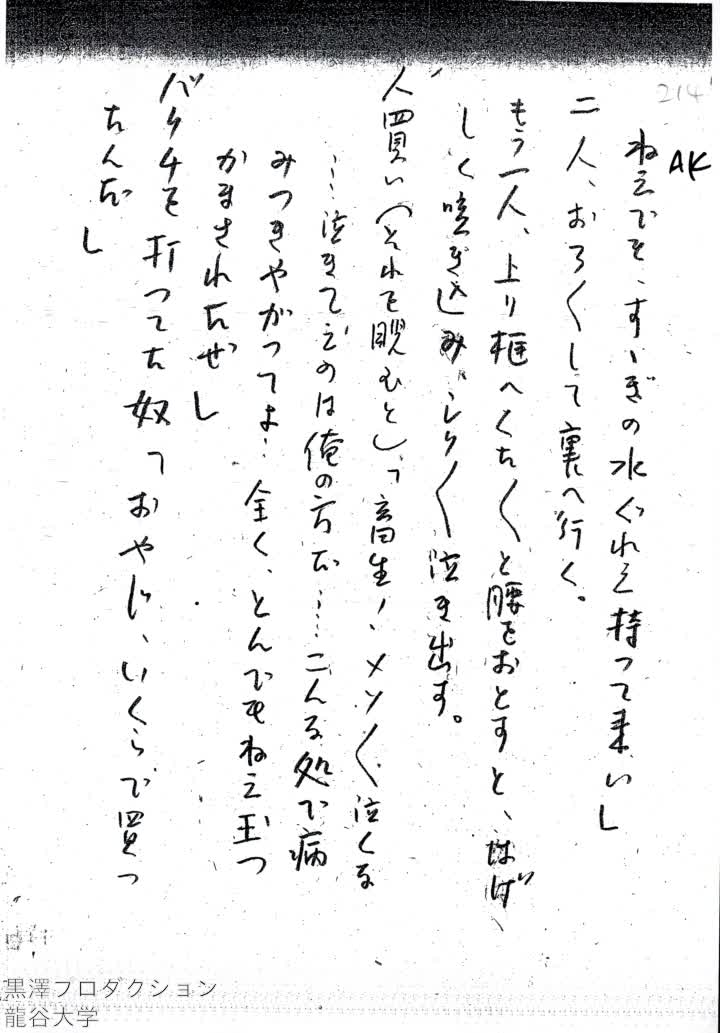 214
AK
ねえでそ、すゝぎの水ぐれえ持つて来い」
二人、おろ〱して裏へ行く。
もう一人、上り框へくた〱と腰をおとすと、はげ
しく咳き込み、しく〱泣き出す。
人買い(それを睨むと)、「畜生！、メソ〱泣くな
…泣きてえのは俺の方だ……こんな処で病
みつきやがつてよ… 全く、とんでもねえ玉つ
かまされたぜ」
バクチを打つてた奴「おやじ、いくらで買つ
たんだ」
黒澤プロダクション
龍谷大学